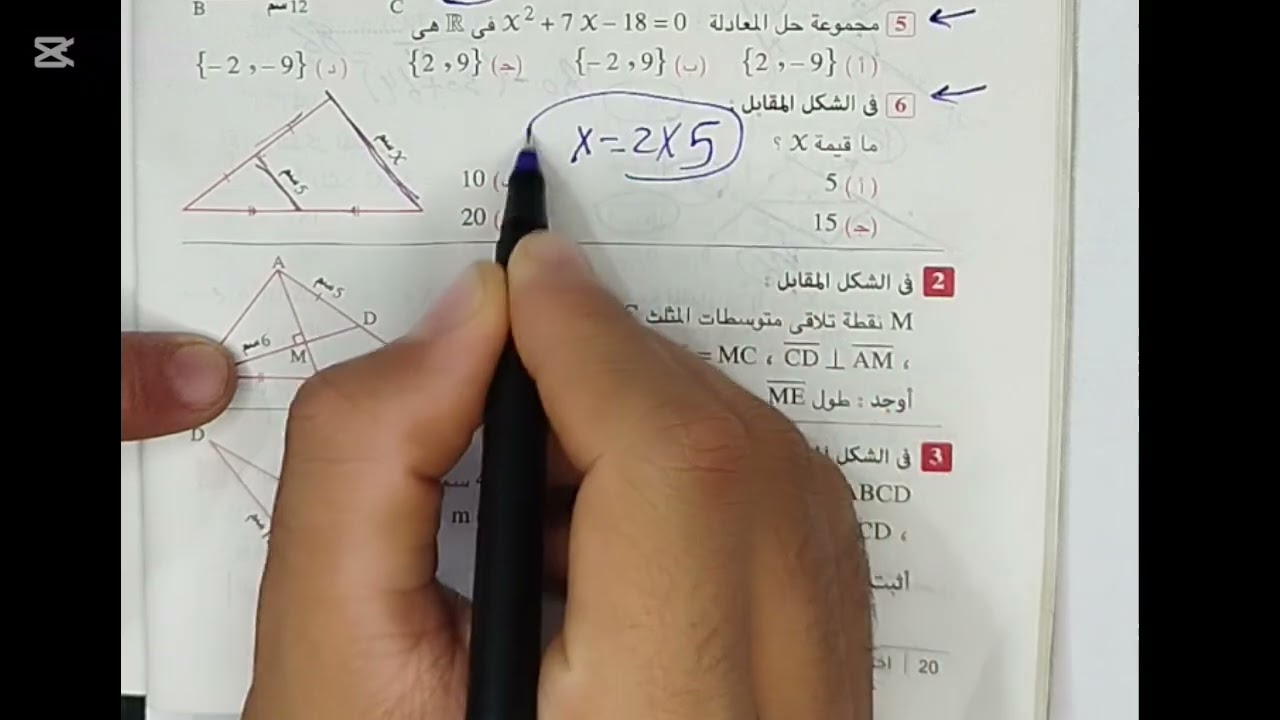 B 12 سم C
5 مجموعة حل المعادلة x² + 7 x – 18 = 0 فى ℝ هى
(أ) {2 , –9} (ب) {–2 , 9} (جـ) {2 , 9} (د) {–2 , –9}
6 فى الشكل المقابل :
ما قيمة x ؟
x = 2 x 5
x سم
5 سم
(أ) 5
10
(جـ) 15
20
2 فى الشكل المقابل :
M نقطة تلاقى متوسطات المثلث
، AM ⊥ CD ، MC =
أوجد : طول ME
A
5 سم
D
6 سم
M
3 فى الشكل
ABCD
، CD
أثبت
D
m
20